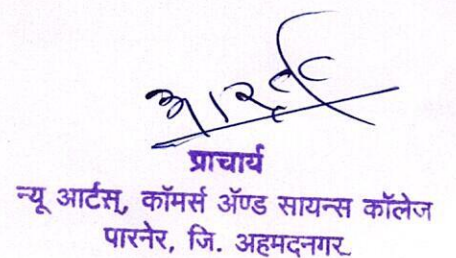 प्राचार्य
न्यू आर्टस्, कॉमर्स ॲण्ड सायन्स कॉलेज
पारनेर, जि. अहमदनगर.